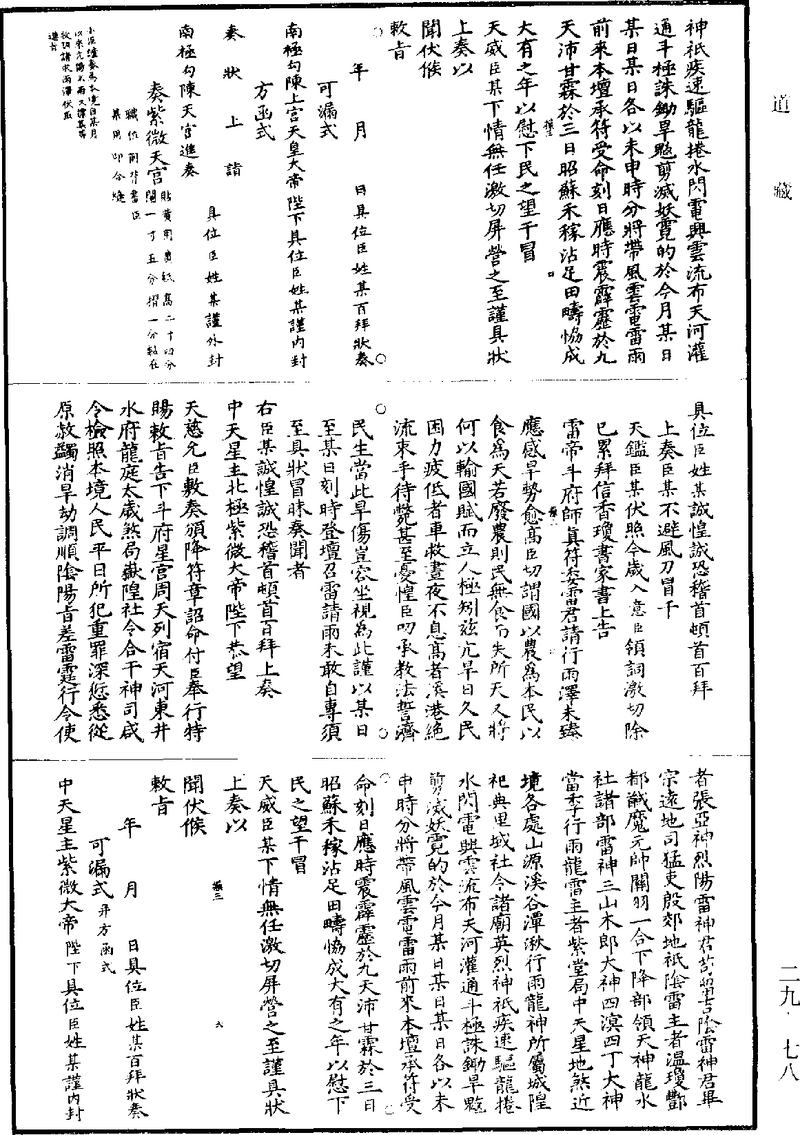 道藏
神祇疾速驅龍捲水閃電興雲流布天河灌
通斗極誅鋤旱魃剪滅妖霓的於今月某日
某日某日各以未申時分將帶風雲電雷雨
前來本壇承符受命刻日應時震霹靂於九
天沛甘霖於三日昭蘇禾稼沾足田疇協成
大有之年以慰下民之望干冒
天威臣某下情無任激切屏營之至謹具狀
上奏以
聞伏候
敕旨
年 月 日具位臣姓某百拜狀奏
可漏式
南極勾陳上宮天皇大帝陛下具位臣姓某謹內封
方函式
奏狀上請 具位臣姓某謹外封
南極勾陳天宮進奏
奏紫微天宮
貼黃用黃紙高二寸四分
闊一寸五分摺一分粘在
職位前背書臣
某用印合縫
具位臣姓某誠惶誠恐稽首頓首百拜
上奏臣某不避風刀冒干
天鑑臣某伏照今歲入意臣領詞激切除
已累拜信香瓊書家書上告
雷帝斗府師真符雷君請行雨澤未臻
應感旱勢愈高臣切謂國以農為本民以
食為天若廢農則民無食而失所天又將
何以輸國賦而立人極矧茲亢旱日久民
困力疲低者車救晝夜不息高者溪港絕
流束手待斃甚至憂惶臣叨承教法誓濟
民生當此旱傷豈容坐視為此謹以某日
至某日刻時登壇召雷請雨未敢自專須
至具狀冒昧奏聞者
右臣某誠惶誠恐稽首頓首百拜上奏
中天星主北極紫微大帝陛下恭望
天慈允臣敷奏頒降符章詔命付臣奉行特
賜敕旨告下斗府星宮周天列宿天河東井
水府龍庭太歲煞局嶽隍社令合干神司咸
令檢照本境人民平日所犯重罪深愆悉從
原赦蠲消旱劫調順陰陽旨差雷霆行令使
者張亞神烈陽雷神君苟畢吉陰雷神君畢
宗遠地司猛吏殷郊地祇陰雷主者溫瓊酆
都馘魔元帥關羽一合下降部領天神龍水
社諸部雷神三山木郎大神四溟四丁大神
當季行雨龍雷主者紫堂局中天星地煞近
境各處山源溪谷潭湫行雨龍神所屬城隍
祀典里域社令諸廟英烈神祇疾速驅龍捲
水閃電興雲流布天河灌通斗極誅鋤旱魃
剪滅妖霓的於今月某日某日某日各以未
申時分將帶風雲電雷雨前來本壇承符受
命刻日應時震霹靂於九天沛甘霖於三日
昭蘇禾稼沾足田疇協成大有之年以慰下
民之望干冒
天威臣某下情無任激切屏營之至謹具狀
上奏以
聞伏候
敕旨
年 月 日具位臣姓某百拜狀奏
可漏式 并方函式
中天星主紫微大帝陛下具位臣姓某謹內封
二九·七八